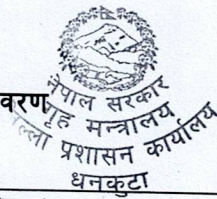 वरण
नेपाल सरकार
गृह मन्त्रालय
ल्ला प्रशासन कार्यालय
धनकुटा